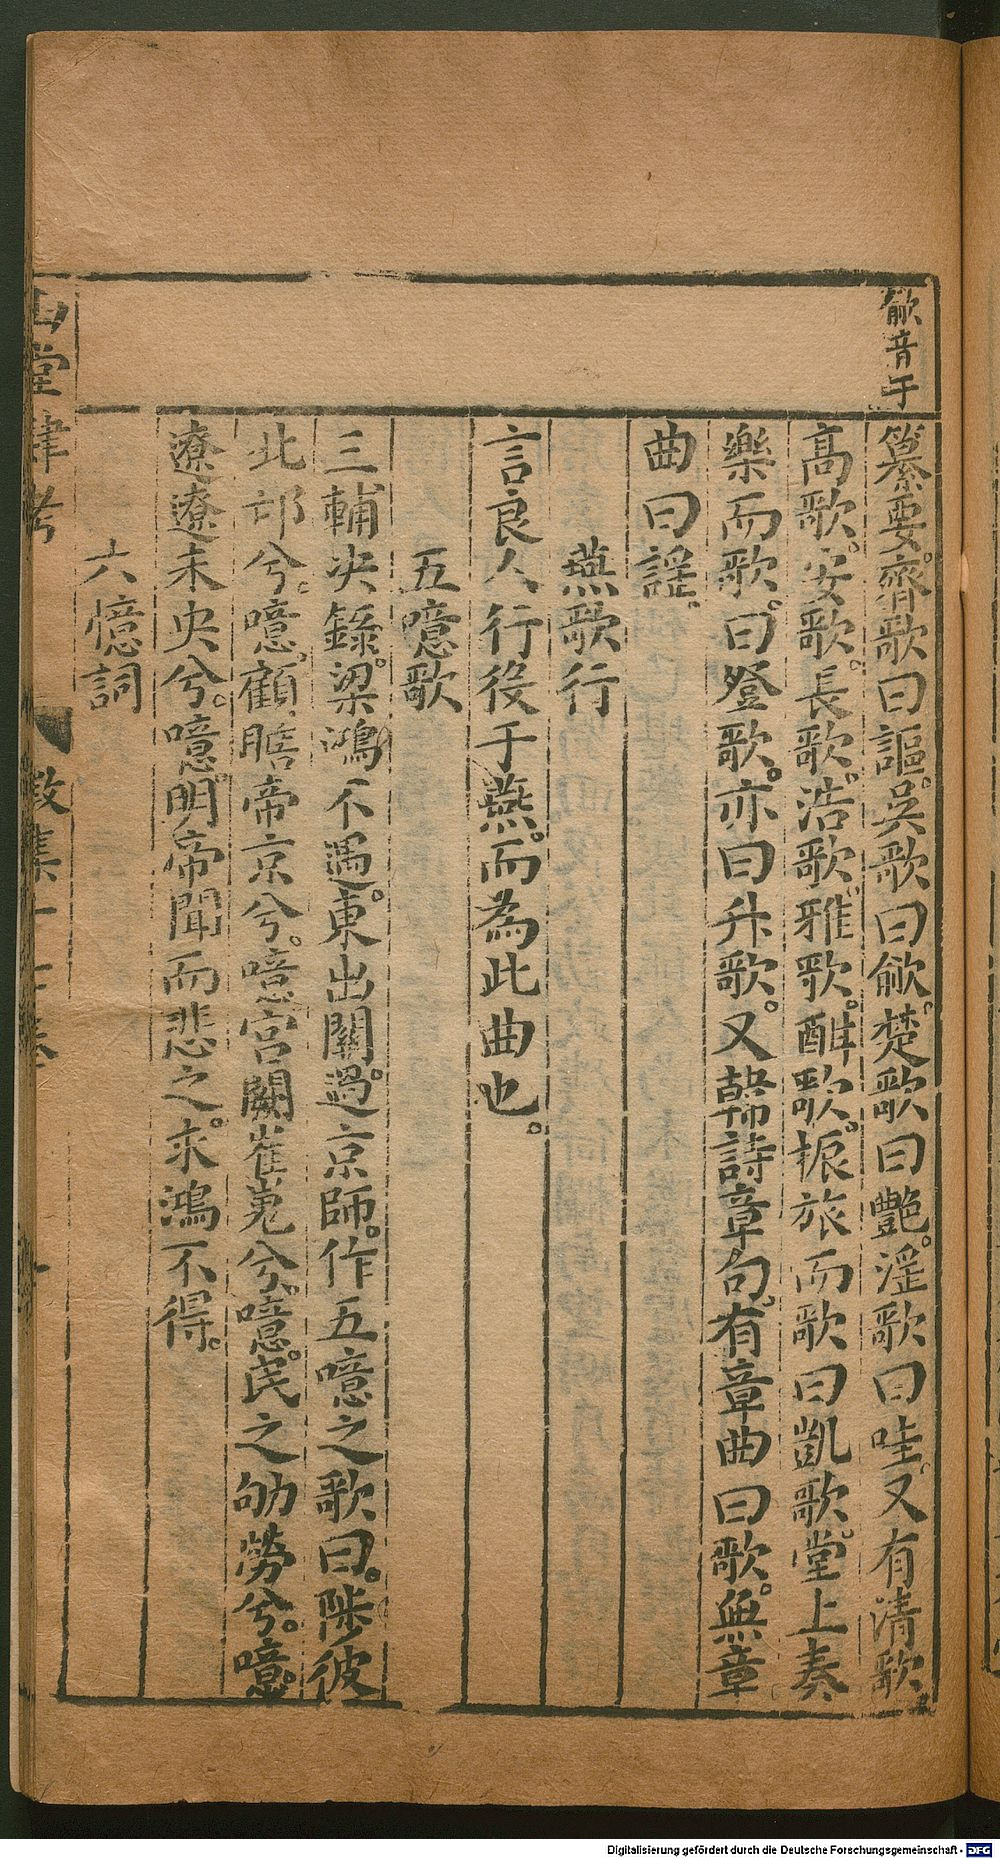 歈音于
纂要。齊歌曰謳。吳歌曰歈。楚歌曰艷。淫歌曰哇。又有清歌
高歌。安歌。長歌。浩歌。雅歌。酣歌。振旅而歌曰凱歌。堂上奏
樂而歌。曰登歌。亦曰升歌。又韓詩章句。有章曲曰歌。無章
曲曰謠。
燕歌行
言良人行役于燕。而為此曲也。
五噫歌
三輔决錄。梁鴻不遇。東出關。過京師。作五噫之歌曰。陟彼
北邙兮。噫。顧瞻帝京兮。噫。宮闕崔嵬兮。噫。民之劬勞兮。噫。
遼遼未央兮。噫。明帝聞而悲之。求鴻不得。
六憶詞
山堂肆考
徵集
Digitalisierung gefördert durch die Deutsche Forschungsgemeinschaft - DFG